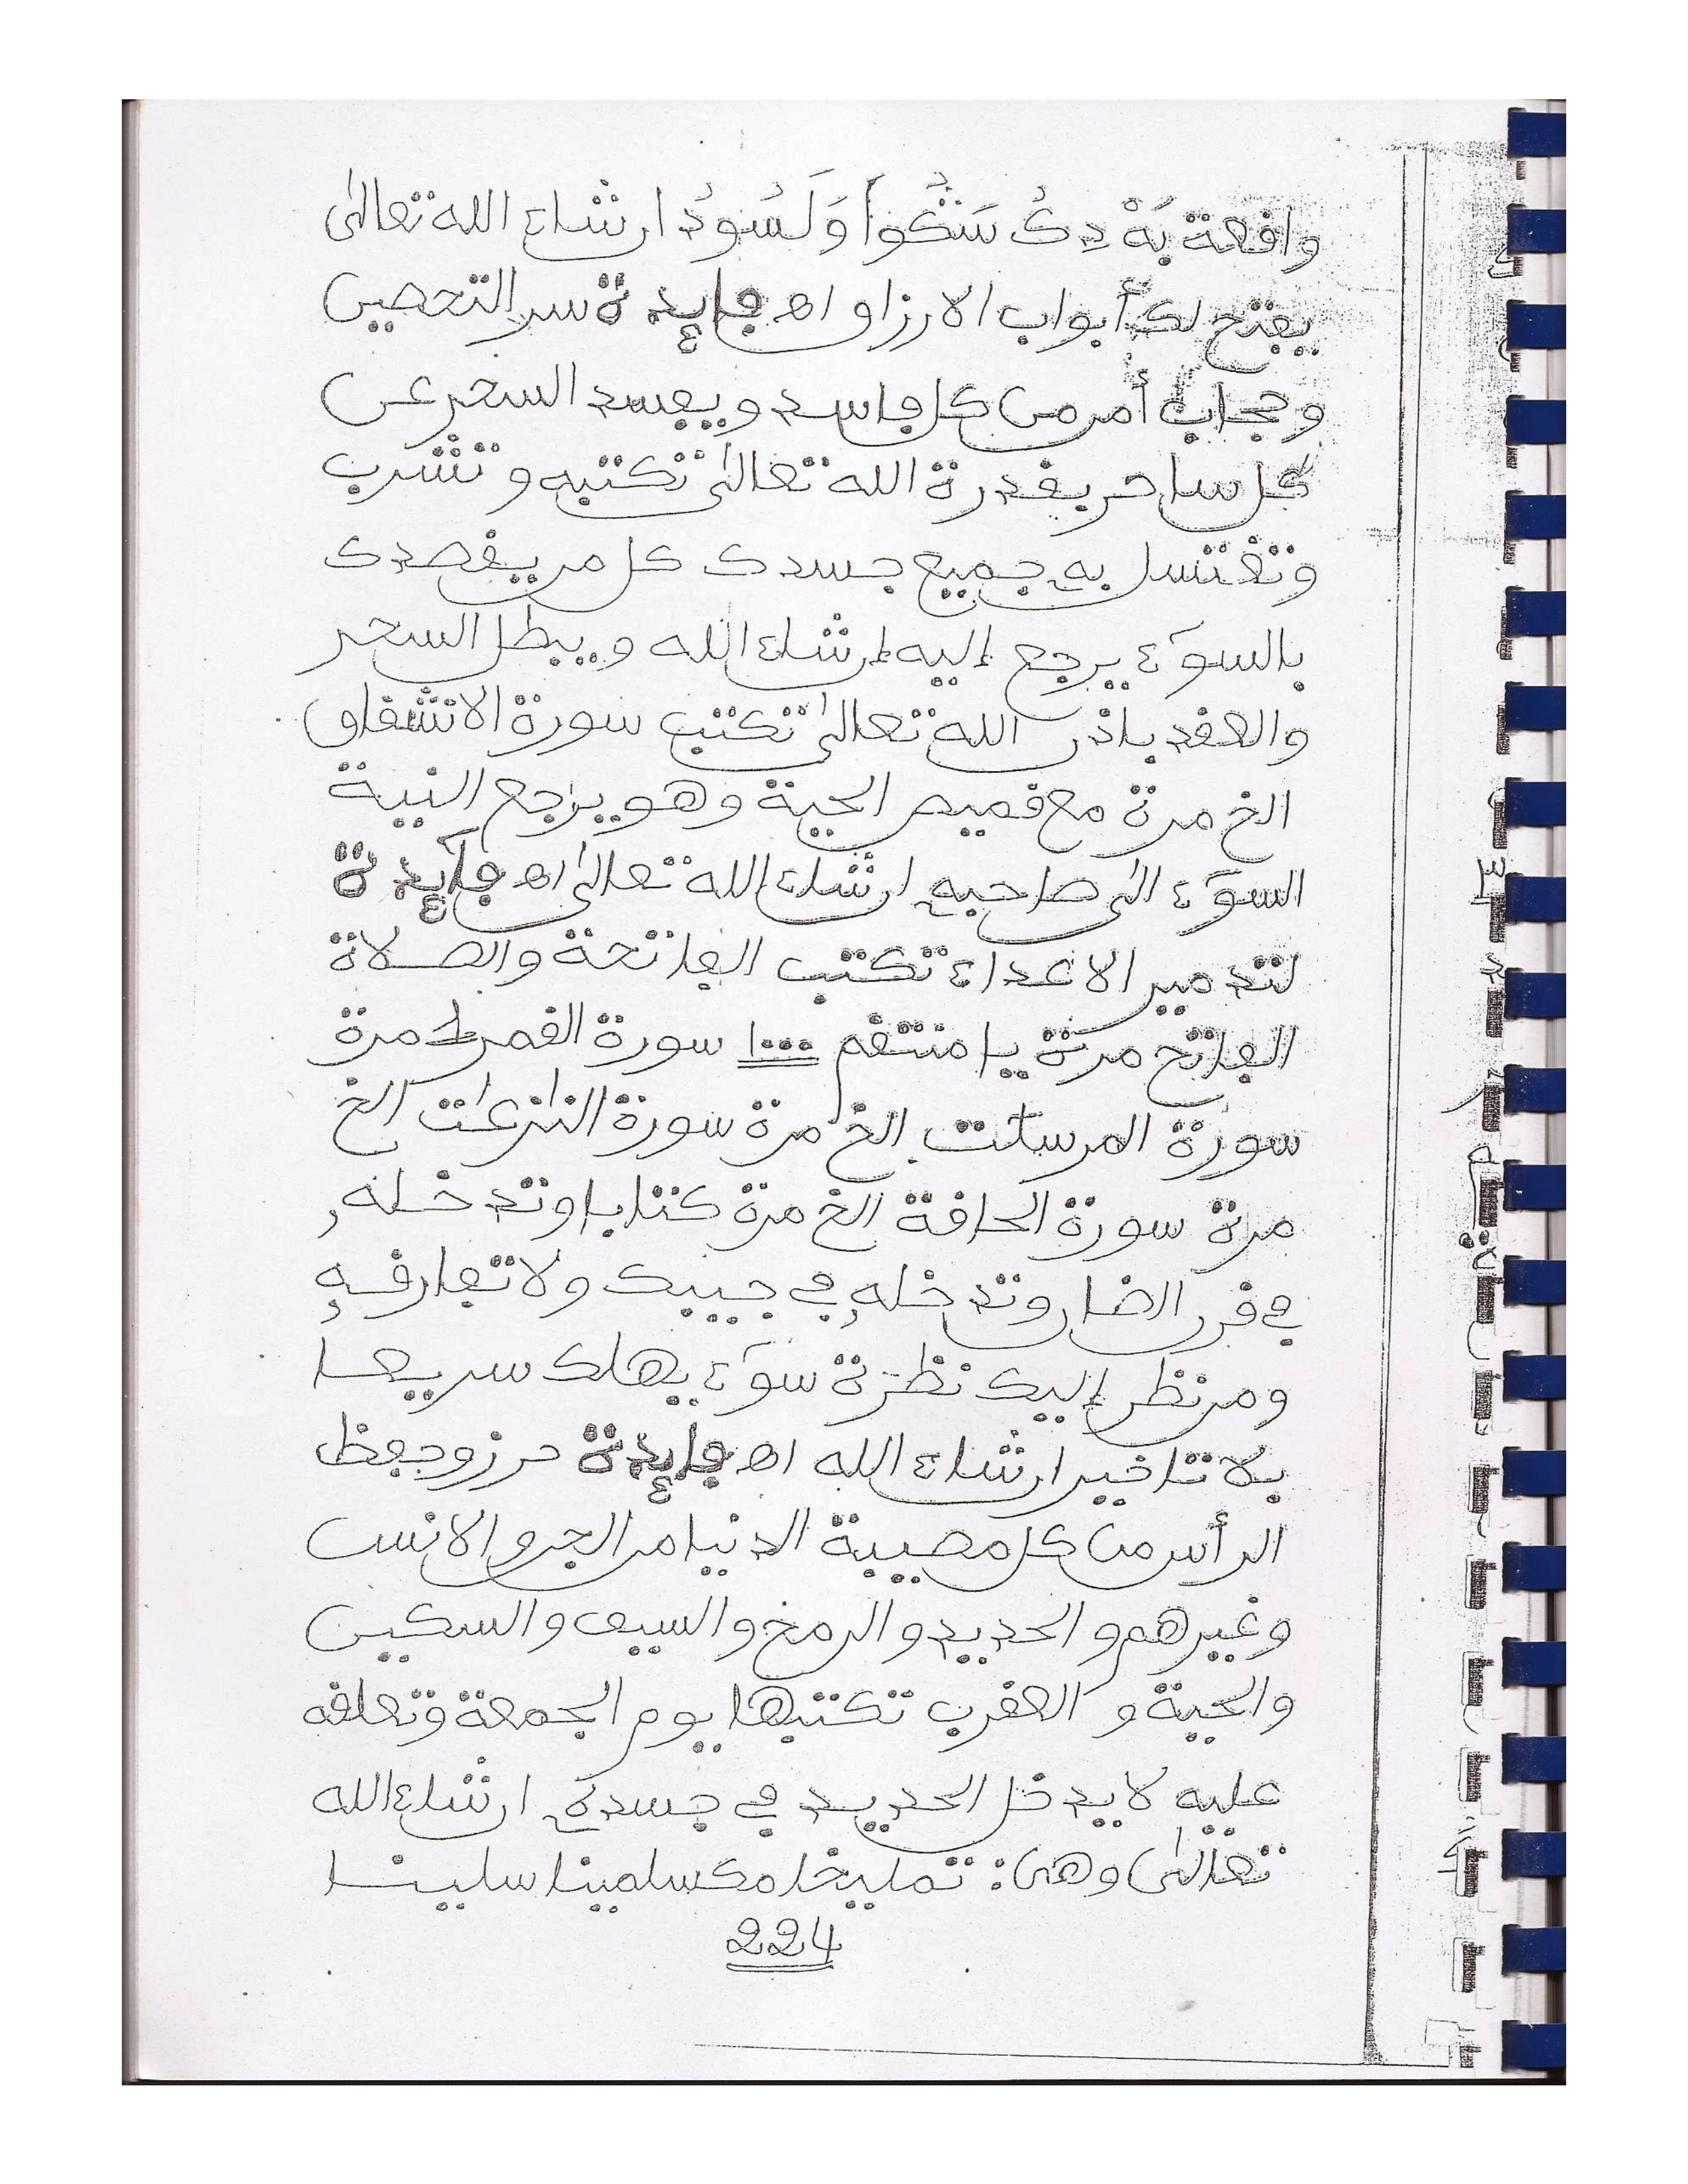 وافعة بَهْ دِكُ سَنْكُواْ وَلَسُودُ ارشاء الله تعالىٰ
يفتح لك أبواب الارزاو اه فايدة سر التحصين
وحجاب أمر من كل فاسد ويفسد السحر عن
كل ساحر بفدرة الله تعالىٰ تكتبه وتشرب
وتغتسل به جميع جسدك كل مر يفصدك
بالسوٓء يرجع إليه إرشاء الله ويبطل السحر
والعفد باذر الله تعالىٰ تكتب سورة الانشفاو
الخ مرة مع فميص الحية وهو يراجع النية
السوٓء الىٰ صاحبه ارشاء الله تعالىٰ اه فايدة
لتدمير الاعداء تكتب الفاتحة والصلاة
الفاتح مرة يا منتفم ١٠٠٠ سورة الفمر مرة
سورة المرسلت الخ مرة سورة النٰزعٰت الخ
مرة سورة الحافة الخ مرة كتابا وتدخله,
في فرر الضار وتدخله في جيبك ولا تفارفه
ومر نظر إليك نظرة سوٓء يهلك سريعا
بلا تاخير ارشاء الله اه فايدة حرز وحفظ
الرأس من كل مصيبة الدنيا مر الجر والانس
وغيرهم والحديد والرمخ والسيف والسكين
والحية و العفرب تكتبها يوم الجمعة وتعلفه
عليه لا يدخل الحديد في جسده ارشاء الله
تعالىٰ وهى: تمليخا مكسلمينا سلينا
224